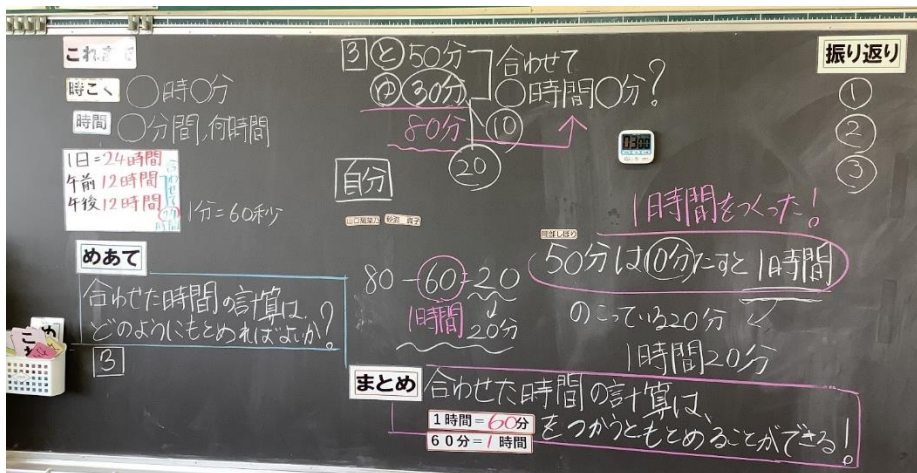 時こく ○時○分
時間 ○分間、何時間
1日=24時間
午前 12時間
午後 12時間
1分=60秒
めあて
合わせた時間の計算は、
どのようにもとめればよいか?
3
3 と 50分
ゆ 30分
合わせて
○時間○分?
80分
10
20
自分
80-60=20
1時間 20分
03:00
1時間をつくった!
50分は10分たすと1時間
のこっている20分
1時間20分
まとめ
合わせた時間の計算は、
1時間=60分
60分=1時間
をつかうともとめることができる!
振り返り
1
2
3